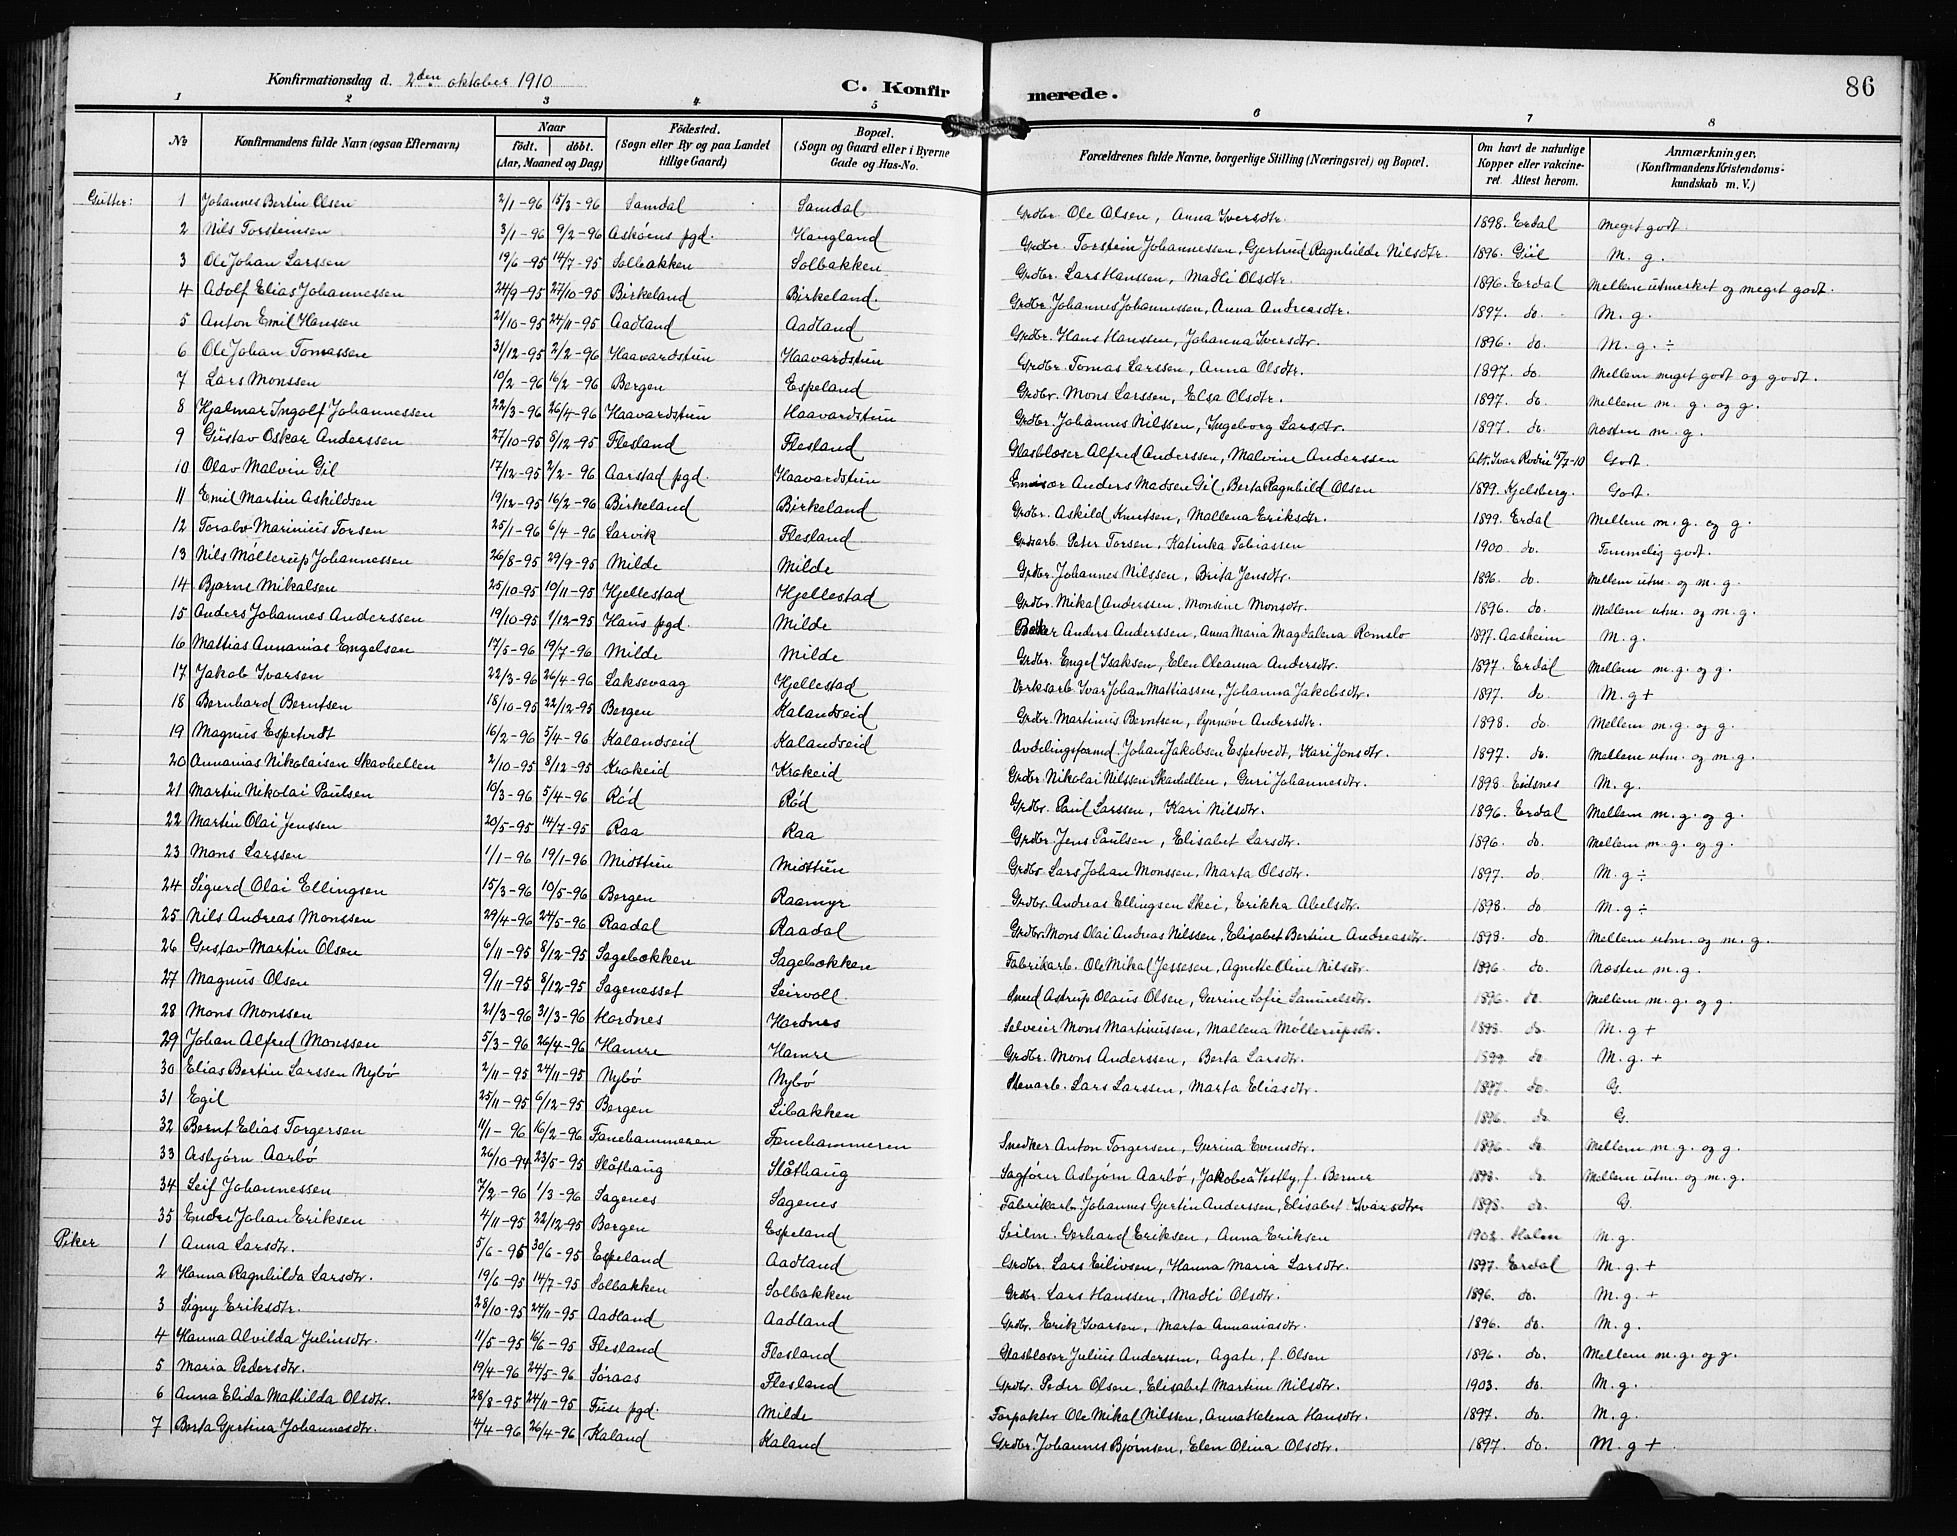 Konfirmationsdag d. 2den oktober 1910
C. Konfirmerede.
86
1 2 3 4 5 6 7 8
№ Konfirmandens fulde Navn (ogsaa Efternavn) Naar født. døbt. (Aar, Maaned og Dag) Födested. (Sogn eller By og paa Landet tillige Gaard) Bopæl. (Sogn og Gaard eller i Byerne Gade og Hus-No. Forældrenes fulde Navne, borgerlige Stilling (Næringsvei) og Bopæl. Om havt de naturlige Kopper eller vakcineret. Attest herom. Anmærkninger. (Konfirmandens Kristendomskundskab m. V.)
Gutter: 1 Johannes Bertin Olsen 2/1-96 15/3-96 Samdal Samdal Grdbr. Ole Olsen, Anna Iversdtr. 1898. Erdal Meget godt
2 Nils Torsteinsen 3/1-96 9/2-96 Askøens pgd. Haugland Grdbr. Torstein Johannessen, Gjertrud Ragnhilde Nilsdtr. 1896. Giil M. g.
3 Ole Johan Larssen 19/6-95 14/7-95 Solbakken Solbakken Grdbr. Lars Hanssen, Madli Olsdtr. 1896. Erdal Mellem utmerket og meget godt.
4 Adolf Elias Johannessen 24/9-95 27/10-95 Birkeland Birkeland. Grdbr. Johannes Johannessen, Anna Andreasdtr. 1897. do. M. g.
5 Anton Emil Hanssen 21/10-95 24/11-95 Aadland Aadland Grdbr. Hans Hanssen, Johanna Iversdtr. 1896. do M. g. ÷
6 Ole Johan Tomassen 31/12-95 2/2-96 Haavardstun Haavardstun Grdbr. Tomas Larssen, Anna Olsdtr. 1897. do Mellem meget godt og godt.
7 Lars Monssen 10/2-96 16/2-96 Bergen Espeland Grdbr. Mons Larssen, Elsa Olsdtr. 1897. do. Mellem m. g. og g.
8 Hjalmar Ingolf Johannessen 22/3-96 26/4-96 Haavardstun Haavardstun Grdbr. Johannes Nilssen, Ingeborg Larsdtr. 1897 do. Næsten m. g.
9 Gustav Oskar Anderssen 27/10-95 5/12-95 Flesland Flesland Glasblæser Alfred Anderssen, Malvine Anderssen Att. Ivar Rodin 15/7-10 Godt.
10 Olav Malvin Gil 17/12-95 2/2-96 Aarstad pgd. Haavardstun Anders Madsen Gil, Berta Ragnhild Olsen 1899. Kjelsberg. Godt.
11 Emil Martin Askildsen 19/12-95 16/2-96 Birkeland Birkeland Grdbr. Askild Knutsen, Mallena Eriksdtr. 1899. Erdal Mellem m. g. og g.
12 Toralv Marinius Torsen 25/1-96 6/4-96 Larvik Flesland Grdsarb. Peter Torsen, Katinka Tobiassen 1900. do. Temmelig godt.
13 Nils Møllerup Johannessen 26/8-95 29/9-95 Milde Milde Grdbr. Johannes Nilssen, Brita Jensdtr. 1896. do. Mellem utm. og m. g.
14 Bjarne Mikalsen 25/10-95 10/11-95 Hjellestad Hjellestad Grdbr. Mikal Anderssen, Monsine Monsdtr. 1896. do. Mellem utm. og m. g.
15 Anders Johannes Anderssen 19/10-95 1/12-95 Haus pgd. Milde Anders Anderssen, Anna Maria Magdalena Romslo 1897. Aasheim M. g.
16 Mattias Annanias Engelsen 17/5-96 19/7-96 Milde Milde Grdbr. Engel Isaksen, Elen Oleanna Andersdtr. 1897. Erdal Mellem m. g. og g.
17 Jakob Ivarsen 22/3-96 26/4-96 Laksevaag Hjellestad Verksarb. Ivar Johan Mattiassen, Johanna Jakobsdtr. 1897. do M. g +
18 Bernhard Berntsen 18/10-95 22/12-95 Bergen Kalandseid Grdbr. Martinius Berntsen, Synnøve Andersdtr. 1898. do. Mellem m. g. og g.
19 Magnus Espetvedt 16/2-96 5/4-96 Kalandseid Kalandseid Avdelingsformd. Johan Jakobsen Espetvedt, Kari Jonsdtr. 1897. do. Mellem utm. og m. g.
20 Annanias Nikolaisen Skavhellen 2/10-95 8/12-95 Krokeid Krokeid Grdbr. Nikolai Nilssen Skavhellen, Guri Johannesdtr. 1898 Eidsnes M. g.
21 Martin Nikolai Paulsen 19/3-96 5/4-96 Rød Rød Grdbr. Paul Larssen, Kari Nilsdtr. 1896. Erdal Mellem m. g. og g.
22 Martin Olai Jenssen 20/5-95 14/7-95 Raa Raa Grdbr. Jens Paulsen, Elisabet Larsdtr. 1896. do. Mellem m. g. og g.
23 Mons Larssen 1/1-96 19/1-96 Midttun Midttun Grdbr Lars Johan Monssen, Marta Olsdtr. 1897. do. M. g ÷
24 Sigurd Olai Ellingsen 15/3-96 10/5-96 Bergen Raamyr Grdbr. Andreas Ellingsen Skei, Erikka Abelsdtr. 1898. do. M. g ÷
25 Nils Andreas Monssen 29/4-96 24/5-96 Raadal Raadal Grdbr. Mons Olai Andreas Nilssen, Elisabet Bertine Andreasdtr. 1898. do. Mellem utm. og m. g.
26 Gustav Martin Olsen 6/11-95 8/12-95 Sagebækken Sagebækken Fabrikarb. Ole Mikal Jessesen, Agnette Oline Nilsdtr. 1896. do. Næsten m. g.
27 Magnus Olsen 9/11-95 8/12-95 Sagenesset Seirvoll. Smed Astrup Olaus Olsen, Gurine Sofie Samuelsdtr. 1896. do. Mellem m. g. og g.
28 Mons Monssen 21/3-96 31/3-96 Hordnes Hordnes Selveier Mons Martinussen, Mallena Møllerupsdtr. 1898 do M. g +
29 Johan Alfred Monssen 5/3-96 26/4-96 Hamre Hamre Grdbr. Mons Anderssen, Berta Larsdtr. do M. g. +
30 Elias Bertin Larssen Nybø 2/11-95 24/11-95 Nybø Nybø Stenarb. Lars Larssen, Marta Eliasdtr. 1897. do. G.
31 Egil 25/11-95 6/12-95 Bergen Libakken 1896. do G.
32 Bernt Elias Torgersen 11/1-96 16/2-96 Fanehammeren Fanehammeren Snedker Anton Torgersen, Gurina Evensdtr. 1896. do Mellem m. g. og g.
33 Asbjørn Aarbø 26/10-94 23/5-95 Slåthaug Slåthaug Sagfører Asbjørn Aarbø, Jakobea Vestby, f. Berner 1898. do. Mellem utm. og m. g.
34 Leif Johannessen 7/2-96 1/3-96 Sagenes Sagenes Fabrikarb. Johannes Gjertin Anderssen, Elisabet Ivarsdtr 1898. do. G.
35 Endre Johan Eriksen 4/11-95 22/12-95 Bergen Espeland Seilm. Gerhard Eriksen, Anna Eriksen 1902. Holm M. g.
Piker 1 Anna Larsdtr. 5/6-95 30/6-95 Espeland Aadland Grdbr. Lars Eilivsen, Hanna Maria Larsdtr. 1897. Erdal M. g +
2 Hanna Ragnhilda Larsdtr. 19/6-95 14/7-95 Solbakken Solbakken Grdbr. Lars Hanssen, Madli Olsdtr. 1896. do. M. g. +
3 Signy Eriksdtr. 28/10-95 24/11-95 Aadland Aadland Grdbr. Erik Ivarsen, Marta Annaniasdtr. 1896. do M. g.
4 Hanna Alvilda Juliusdtr. 11/5-95 16/6-95 Flesland Flesland Glasblæser Julius Anderssen, Agate, f. Olsen 1896. do. Mellem m. g. og g.
5 Maria Pedersdtr. 19/4-96 24/5-96 Søraas Flesland Grdbr. Peder Olsen, Elisabet Martine Nilsdtr. 1903. do. M. g.
6 Anna Elida Mathilda Olsdtr. 28/8-95 24/11-95 Fuse pgd. Milde Forpakter Ole Mikal Nilssen, Anna Helena Hansdtr. 1897. do. M. g.
7 Berta Gjertina Johannesdtr. 4/4-96 26/4-96 Kaland Kaland Grdbr. Johannes Bjørnsen, Elen Olina Olsdtr. 1897. do. M. g +